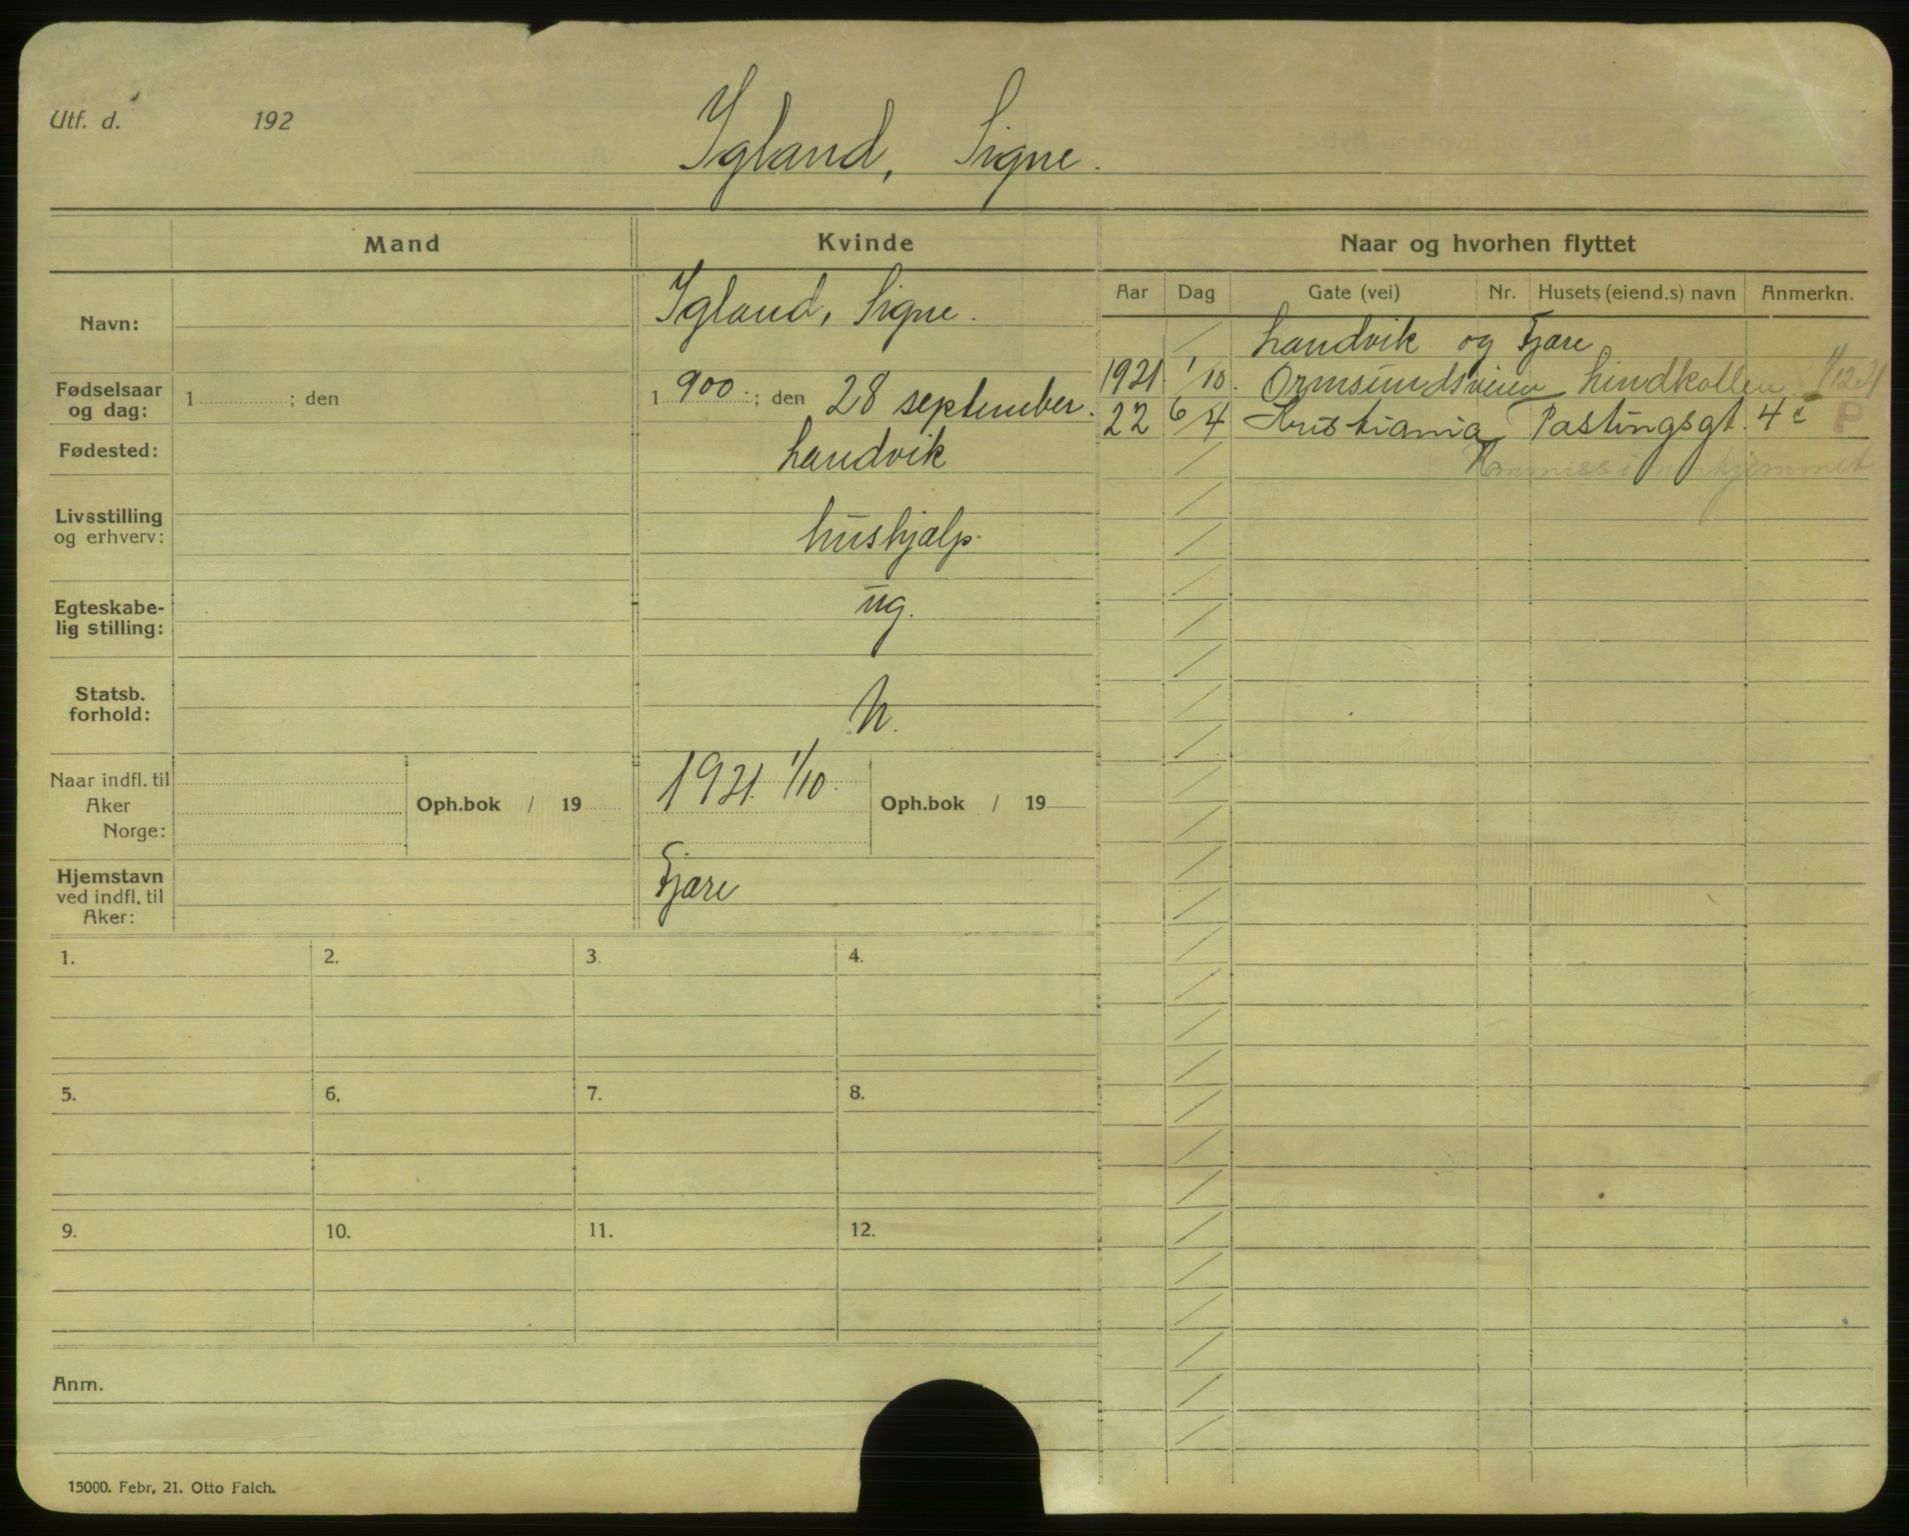 Utf. d. 192
Igland, Signe.
Mand Kvinde Naar og hvorhen flyttet
Aar Dag Gate (vei) Nr. Husets (eiend.s) navn Anmerkn.
Navn: Igland, Signe.
Landvik og Fjære
Fødselsaar og dag: 1 ; den 1 900. ; den 28 september.
1921. 1/10. Ormsundsveien Lindkollen 1/12 21
22 6/4 Kristiania Pastingsgt. 4 c P
Fødested: Landvik
Livsstilling
og erhverv: hushjælp.
Egteskabe-
lig stilling: ug.
Statsb.
forhold: N.
Naar indfl. til
Aker
Norge:
Oph.bok / 19
1921. 1/10.
Oph.bok / 19
Hjemstavn
ved indfl. til
Aker:
Fjære
1. 2. 3. 4.
5. 6. 7. 8.
9. 10. 11. 12.
Anm.
15000. Febr. 21. Otto Falch.